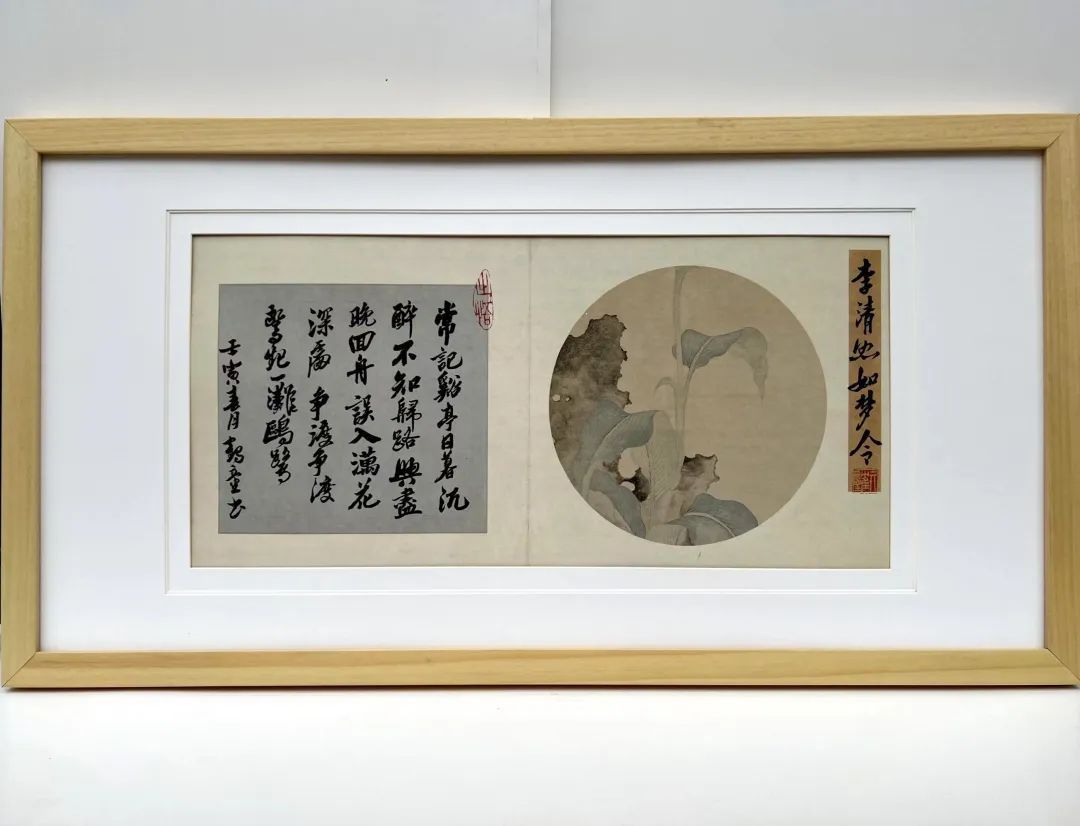 李清照如梦令
常記谿亭日暮沉
醉不知歸路興盡
晚回舟誤入藕花
深處争渡争渡
驚起一灘鷗鷺
壬寅春月